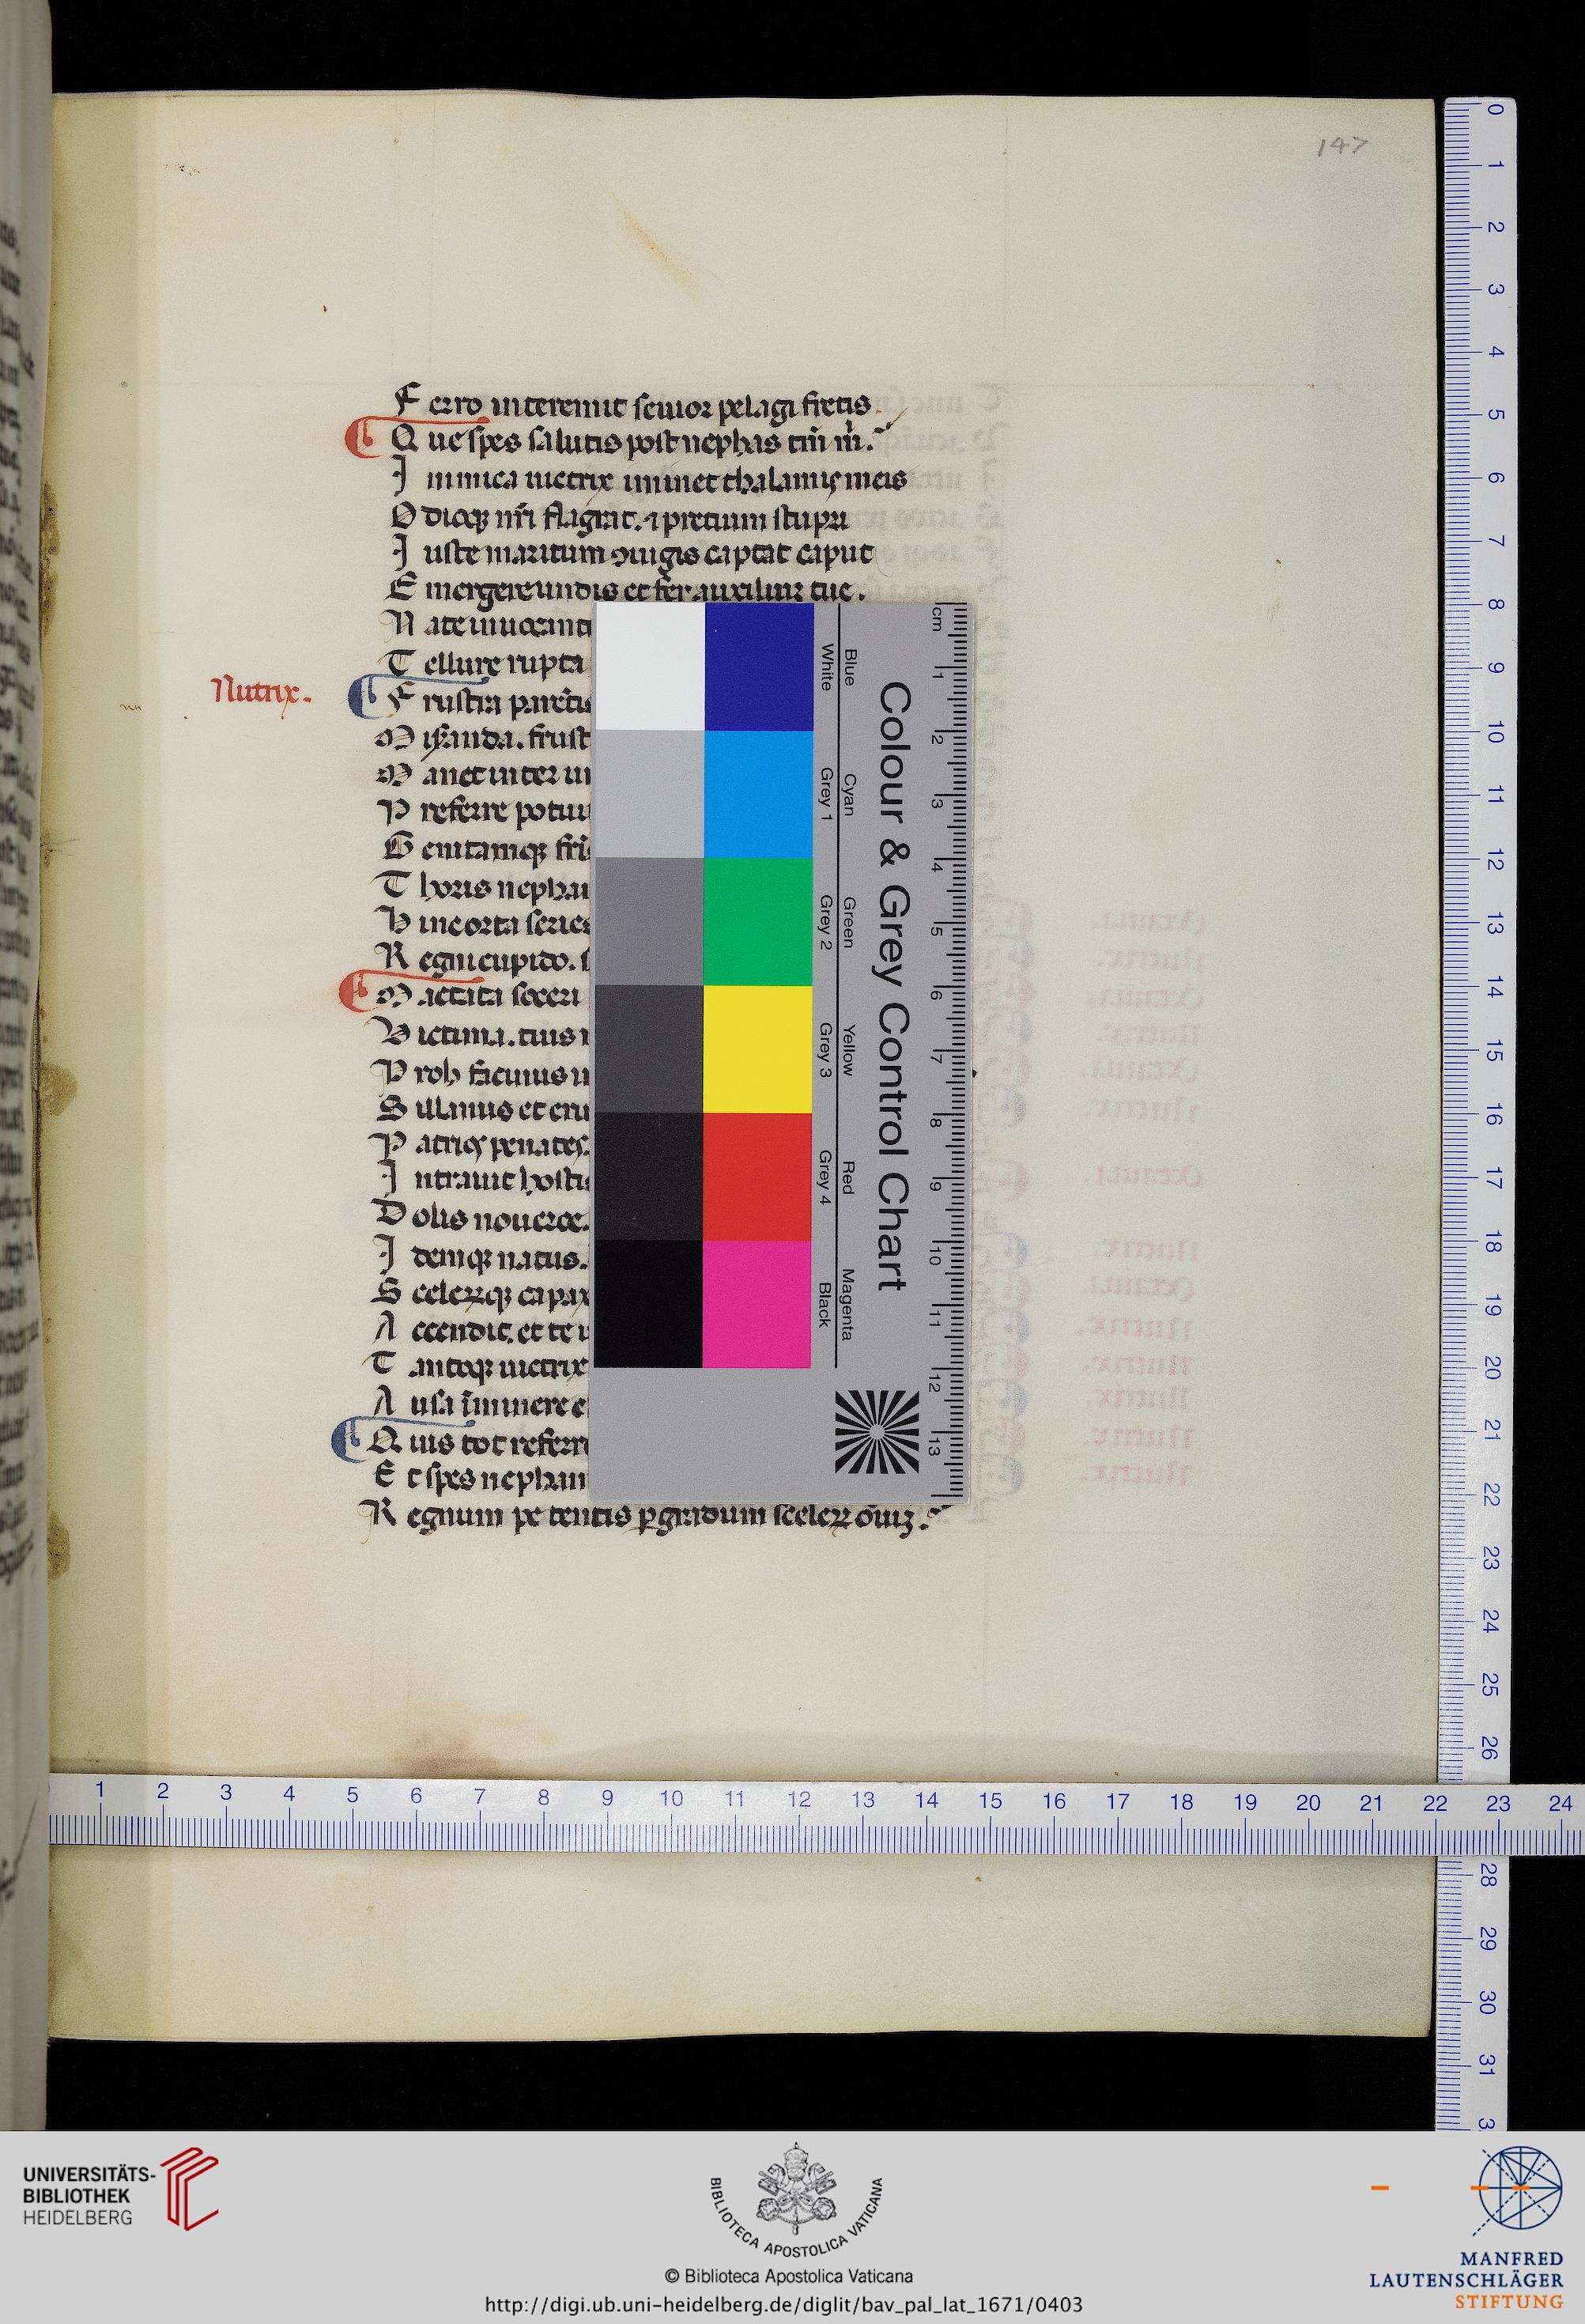 147
F erro interemit seuior pelagi fretis
Q ue spes salutis post nephas tm̄ m̄.
I nimica uictrix iminet thalamis meis
O dioq; nr̄i flagrat. ⁊ precium stupri
I uste maritum ꝯiugis captat caput
E mergere undis et fer auxiliuꝫ tue.
N ate inuocanti
T ellure rupta
Nutrix.
F rustra parētis
M anda. frust
M anet inter u
P referre potui
G enitamq; frē
T horis nephan
H inc orta series
R egni cupido. s
M actata soceri
V ictima. tuis
P roh facinus
S illanus et cru
P atrios penates.
I ntrauit hostis
D olis nouerce.
I demq; natus.
S celerꝝq; capax
A ccendit. et te
T antoq; uictrix
A usa īminere e
Q uis tot referre
E t spes nephan
R egnum pe tentis ꝑ gradum scelerꝝ om̄iꝫ.
Colour & Grey Control Chart
Blue
Cyan
Green
Yellow
Red
Magenta
White
Grey 1
Grey 2
Grey 3
Grey 4
Black
cm 1 2 3 4 5 6 7 8 9 10 11 12 13
0 1 2 3 4 5 6 7 8 9 10 11 12 13 14 15 16 17 18 19 20 21 22 23 24 25 26 28 29 30 31 3
1 2 3 4 5 6 7 8 9 10 11 12 13 14 15 16 17 18 19 20 21 22 23 24
UNIVERSITÄTS-
BIBLIOTHEK
HEIDELBERG
BIBLIOTECA APOSTOLICA VATICANA
© Biblioteca Apostolica Vaticana
http://digi.ub.uni-heidelberg.de/diglit/bav_pal_lat_1671/0403
MANFRED
LAUTENSCHLÄGER
STIFTUNG